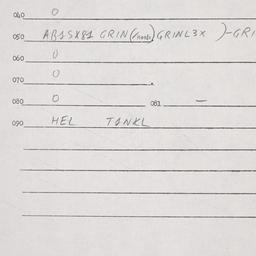 040 0
050 AB1SX81 GRIN(roots)GRINL3X )-GRI
060 0
070 0
080 0 081 —
090 HEL TANKL